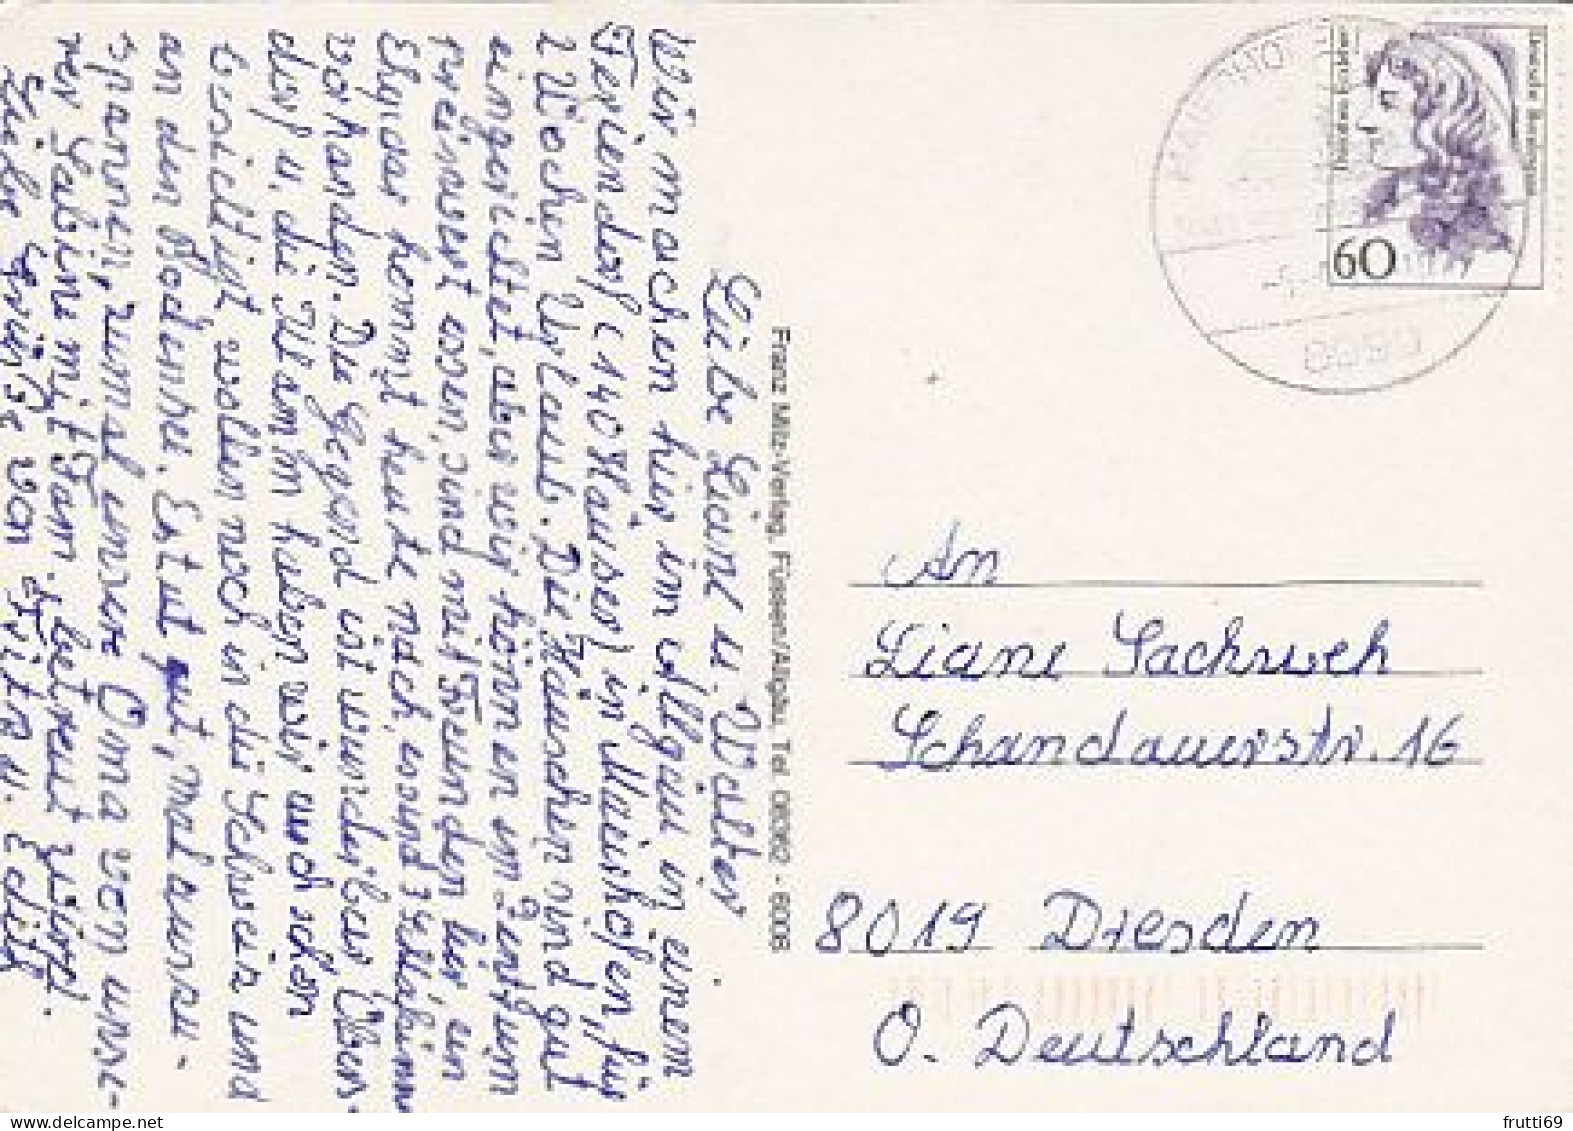 Liebe Liane u. Walter
Wir machen hier im Allgäu in einem
Feriendorf (140 Häuser) in Maierhofen, für
2 Wochen Urlaub. Die Häuschen sind gut
eingerichtet, aber wir können im Zentrum
preiswert essen, sind mit Freunden hier, ein
Ehepaar kommt heute nach, sound
vorhanden. Die Gegend ist wunderbar Obers-
dorf u. die Klamm haben wir auch schon
besichtigt, wollen noch in die Schweiz und
an den Bodensee. Es tut gut, mal auszu-
spannen, zumal unsere Oma von unse-
rer Sabine mit Fam. betreut wird.
Liebe Grüße von Fritz u. Edith
Franz Milz-Verlag, Füssen/Allgäu, Tel. 08362 - 6006
Deutsche Bundespost
60
An
Liane Sachsweh
Schandauerstr. 16
8019 Dresden
O. Deutschland
frutti69